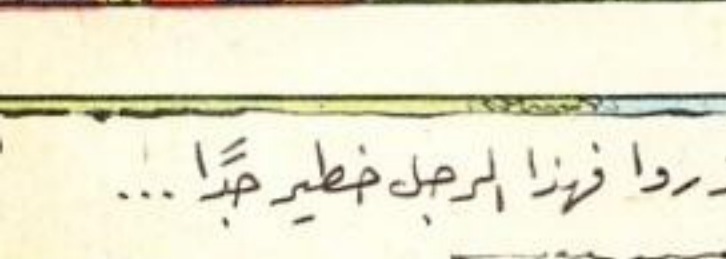 فهذا الرجل خطير جدًّا ...